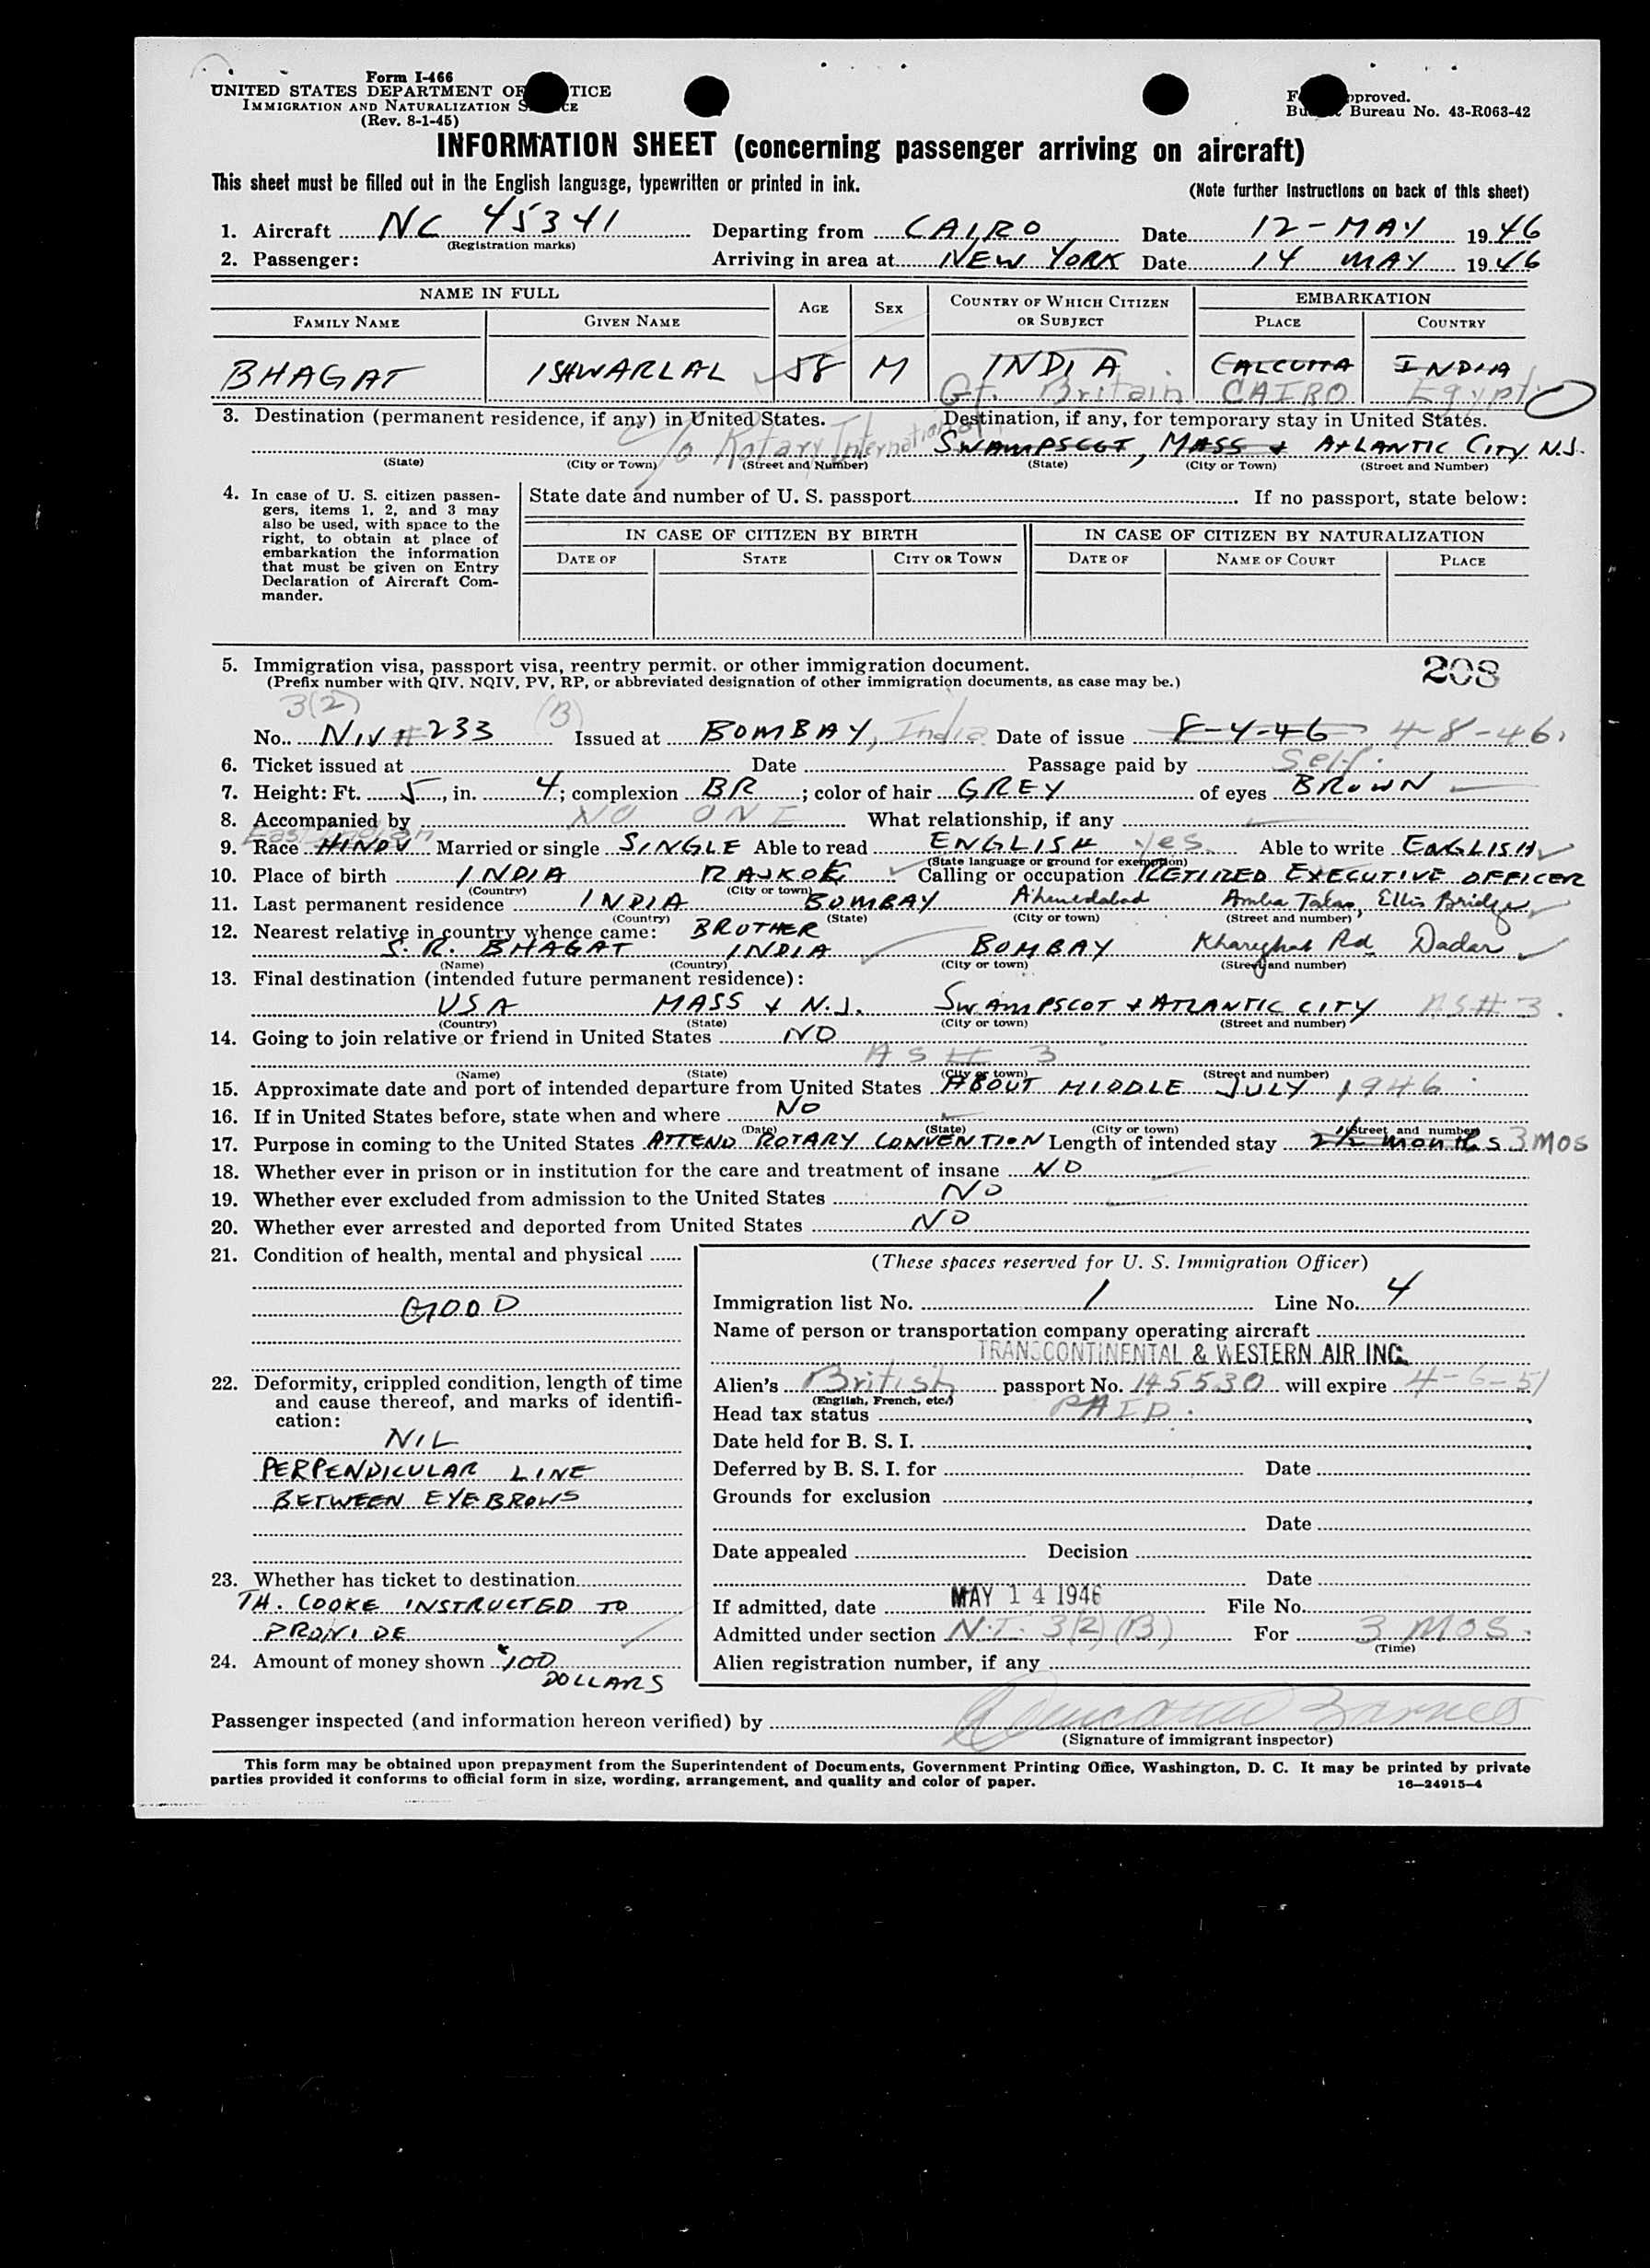 Form I-466
UNITED STATES DEPARTMENT OF TICE
IMMIGRATION AND NATURALIZATION S CE
(Rev. 8-1-45)
F pproved.
Bu Bureau No. 43-R063-42
INFORMATION SHEET (concerning passenger arriving on aircraft)
This sheet must be filled out in the English language, typewritten or printed in ink.
(Note further instructions on back of this sheet)
1. Aircraft NC 45341 Departing from CAIRO Date 12-MAY 1946
(Registration marks)
2. Passenger: Arriving in area at NEW YORK Date 14 MAY 1946
NAME IN FULL AGE SEX COUNTRY OF WHICH CITIZEN OR SUBJECT EMBARKATION
FAMILY NAME GIVEN NAME PLACE COUNTRY
BHAGAT ISHWARLAL 58 M INDIA CALCUTTA INDIA
Gt. Britain CAIRO Egypt
3. Destination (permanent residence, if any) in United States. Destination, if any, for temporary stay in United States.
c/o Rotary International SWAMPSCOT, MASS & ATLANTIC CITY N.J.
(State) (City or Town) (Street and Number) (State) (City or Town) (Street and Number)
4. In case of U. S. citizen passengers, items 1, 2, and 3 may also be used, with space to the right, to obtain at place of embarkation the information that must be given on Entry Declaration of Aircraft Commander.
State date and number of U. S. passport If no passport, state below:
IN CASE OF CITIZEN BY BIRTH IN CASE OF CITIZEN BY NATURALIZATION
DATE OF STATE CITY OR TOWN DATE OF NAME OF COURT PLACE
5. Immigration visa, passport visa, reentry permit, or other immigration document.
208
(Prefix number with QIV, NQIV, PV, RP, or abbreviated designation of other immigration documents, as case may be.)
3(2) (B)
No. NIV # 233 Issued at BOMBAY, India Date of issue 8-4-46 4-8-46
6. Ticket issued at Date Passage paid by Self.
7. Height: Ft. 5, in. 4; complexion BR; color of hair GREY of eyes BROWN
8. Accompanied by NO ONE What relationship, if any
East Indian
9. Race HINDU Married or single SINGLE Able to read ENGLISH yes Able to write ENGLISH
(State language or ground for exemption)
10. Place of birth INDIA RAJKOT Calling or occupation RETIRED EXECUTIVE OFFICER
(Country) (City or town)
11. Last permanent residence INDIA BOMBAY Ahmedabad Amba Talao, Ellis Bridge
(Country) (State) (City or town) (Street and number)
12. Nearest relative in country whence came: BROTHER
S. R. BHAGAT INDIA BOMBAY Khareghat Rd Dadar
(Name) (Country) (City or town) (Street and number)
13. Final destination (intended future permanent residence):
USA MASS & N.J. SWAMPSCOT & ATLANTIC CITY AS # 3.
(Country) (State) (City or town) (Street and number)
14. Going to join relative or friend in United States NO
AS # 3
(Name) (State) (City or town) (Street and number)
15. Approximate date and port of intended departure from United States ABOUT MIDDLE JULY 1946
16. If in United States before, state when and where NO
(Date) (State) (City or town) (Street and number)
17. Purpose in coming to the United States ATTEND ROTARY CONVENTION Length of intended stay 2½ months 3 MOS
18. Whether ever in prison or in institution for the care and treatment of insane NO
19. Whether ever excluded from admission to the United States NO
20. Whether ever arrested and deported from United States NO
21. Condition of health, mental and physical
GOOD
22. Deformity, crippled condition, length of time and cause thereof, and marks of identification:
NIL
PERPENDICULAR LINE
BETWEEN EYEBROWS
23. Whether has ticket to destination
TH. COOKE INSTRUCTED TO
PROVIDE
24. Amount of money shown $100
DOLLARS
(These spaces reserved for U. S. Immigration Officer)
Immigration list No. 1 Line No. 4
Name of person or transportation company operating aircraft
TRANSCONTINENTAL & WESTERN AIR INC.
Alien's British passport No. 145530 will expire 4-6-51
(English, French, etc.)
Head tax status PAID.
Date held for B. S. I.
Deferred by B. S. I. for Date
Grounds for exclusion
Date
Date appealed Decision
Date
If admitted, date MAY 14 1946 File No.
Admitted under section N.I. 3(2)(B) For 3 MOS.
(Time)
Alien registration number, if any
Passenger inspected (and information hereon verified) by
(Signature of immigrant inspector)
This form may be obtained upon prepayment from the Superintendent of Documents, Government Printing Office, Washington, D. C. It may be printed by private
parties provided it conforms to official form in size, wording, arrangement, and quality and color of paper.
16—24915-4